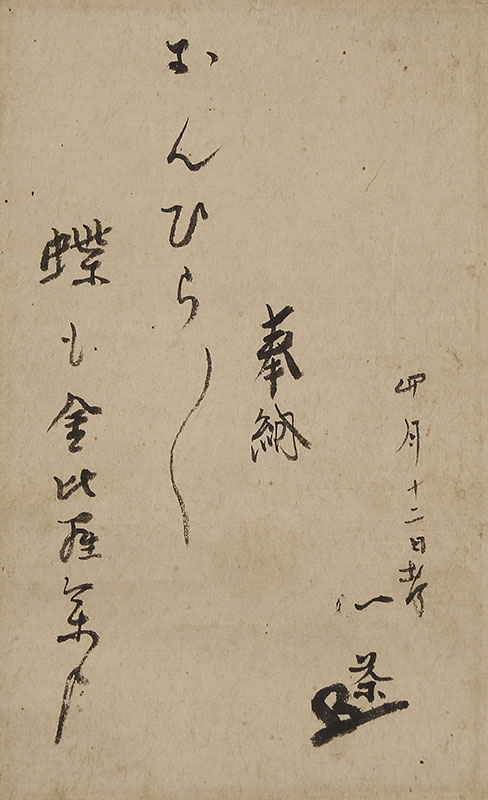 四月十二日
一茶
奉納
おんひら〱
蝶も金比羅参哉